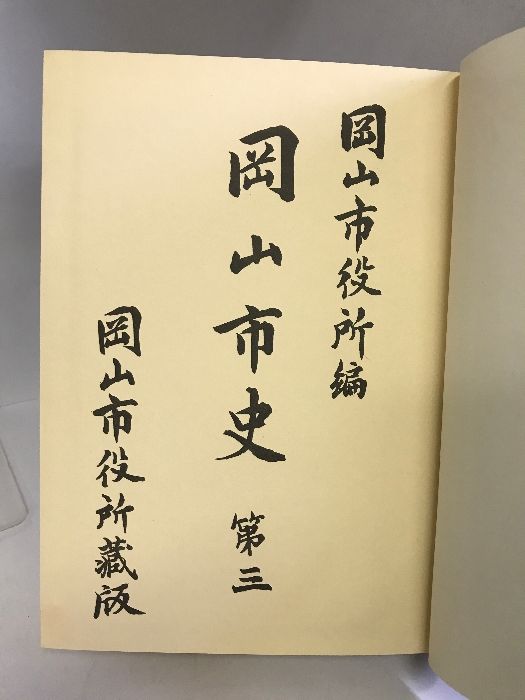 岡山市役所編
岡山市史 第三
岡山市役所藏版